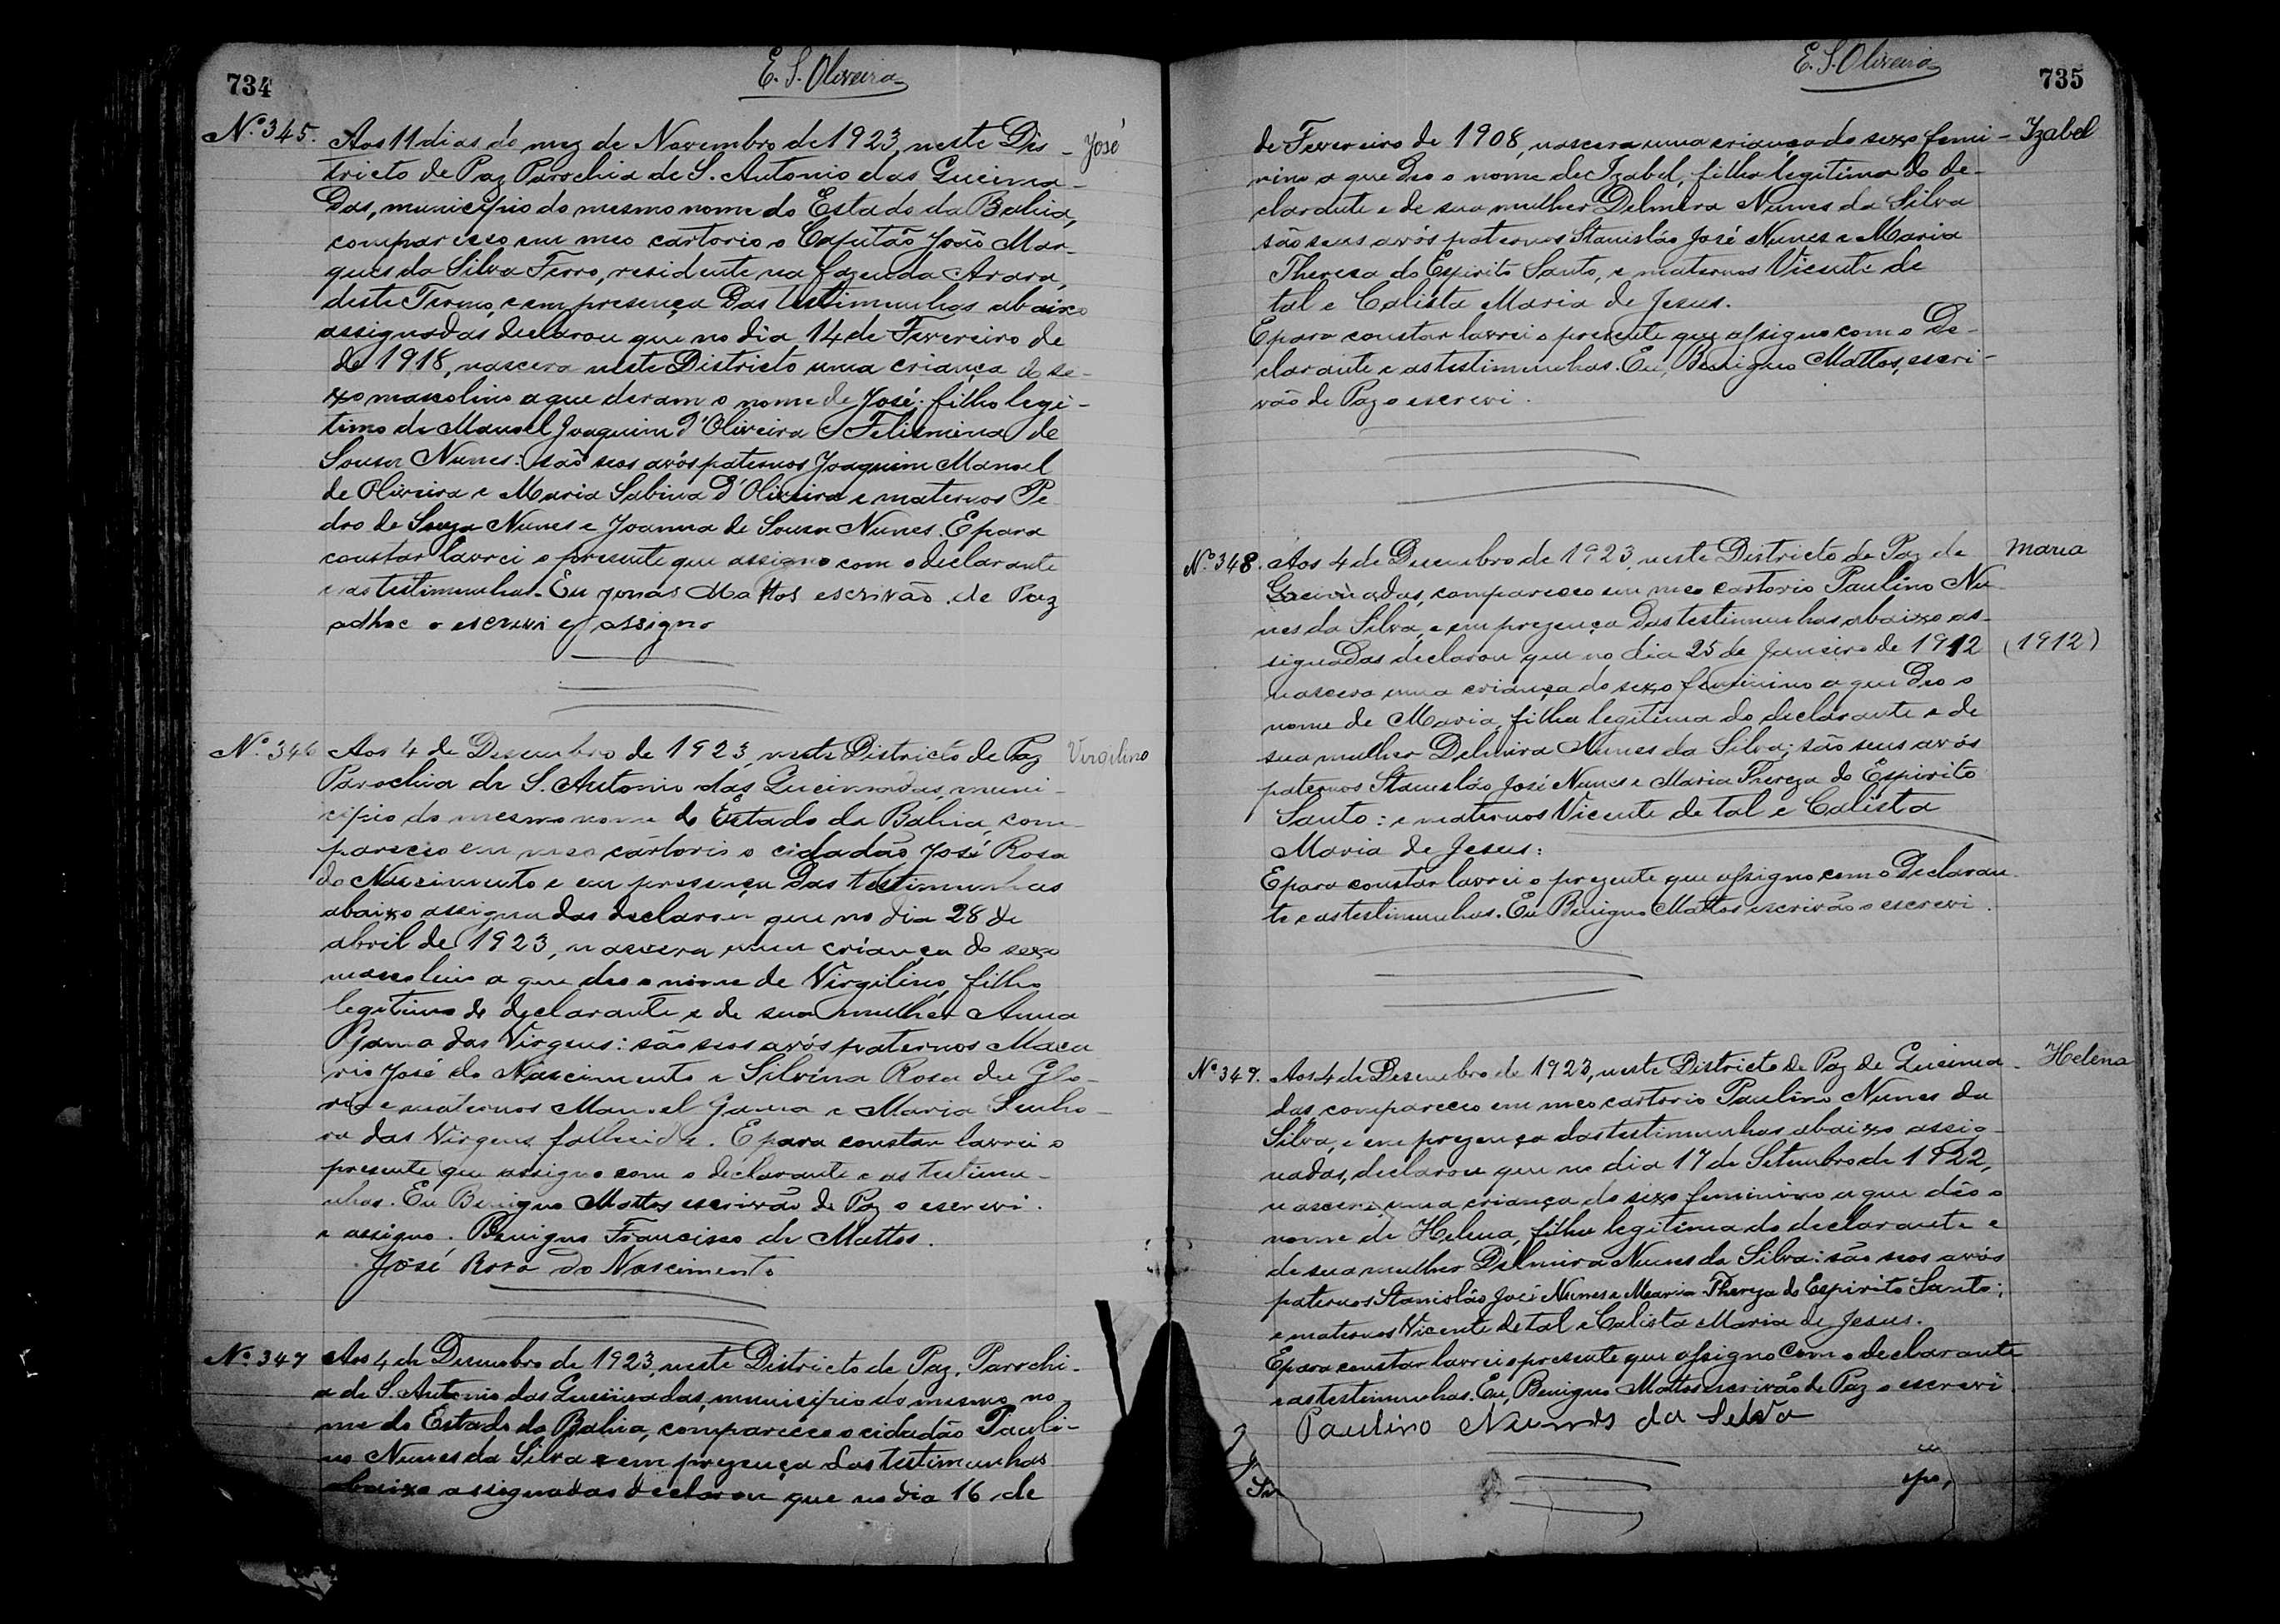 734
E. S. Oliveira
Nº 345. Aos 11 dias do mez de Novembro de 1923, neste Dis- José
tricto de Paz Parochia de S. Antonio das Queima-
das, municipio do mesmo nome do Estado da Bahia,
compareceo em meo cartorio o Capitão João Mar-
ques da Silva Ferro, residente na fazenda Arara,
deste Termo, e em presença das testimunhas abaixo
assignadas declarou que no dia 14 de Fevereiro de
de 1918, nascera neste Districto uma criança do se-
xo mascolino a que deram o nome de José: filho legi-
timo de Manoel Joaquim d'Oliveira e Felismina de
Sousa Nunes: são seos avós paternos Joaquim Manoel
de Oliveira e Maria Sabina d'Oliveira e maternos Pe
dro de Souza Nunes e Joanna de Sousa Nunes. E para
constar lavrei o presente que assigno com o declarante
e as testimunhas. Eu Jonas Mattos escrivão de Paz
adhoc o escrevi e assigno
Nº 346 Aos 4 de Desembro de 1923, neste Districto de Paz Virgilino
Parochia de S. Antonio das Queimadas, muni-
cipio do mesmo nome do Estado da Bahia, com-
pareceo em meo cartorio o cidadão José Rosa
do Nascimento e em presença das testimunhas
abaixo assignadas declarou que no dia 28 de
abril de 1923, nascera uma criança do sexo
mascolino a que deo o nome de Virgilino, filho
legitimo do declarante e de sua mulher Anna
Gama das Virgens: são seos avós paternos Maca
rio José do Nascimento e Silvina Rosa da Glo-
ria e maternos Manoel Gama e Maria Senho-
ra das Virgens, fallecida. E para constar lavrei o
presente que assigno com o declarante e as testimu-
nhas. Eu Benigno Mattos escrivão de Paz o escrevi.
e assigno. Benigno Francisco de Mattos.
José Rosa do Nascimento
Nº 347 Aos 4 de Desembro de 1923, neste Districto de Paz, Parochi-
a de S. Antonio das Queimadas, municipio do mesmo no
me do Estado da Bahia, compareceo o cidadão Pauli-
no Nunes da Silva e em prezença das testimunhas
abaixo assignadas declarou que no dia 16 de
E. S. Oliveira
735
de Fevereiro de 1908, nascera uma criança do sexo femi- Izabel
nino a que deo o nome de Izabel, filha legitima do de-
clarante e de sua mulher Delmira Nunes da Silva
são seus avós paternos Stanislão José Nunes e Maria
Thereza do Espirito Santo, e maternos Vicente de
tal e Calista Maria de Jesus.
E para constar lavrei o presente que assigno com o De-
clarante e as testimunhas. Eu, Benigno Mattos, escri-
vão de Paz o escrevi.
Nº 348. Aos 4 de Desembro de 1923, neste Districto de Paz de Maria
Queimadas, compareceo em meo cartorio Paulino Nu-
nes da Silva, e em prezença das testimunhas abaixo as-
signadas declarou que no dia 25 de Janeiro de 1912 (1912)
nascera uma criança do sexo feminino a que deo o
nome de Maria, filha legitima do declarante e de
sua mulher Delmira Nunes da Silva; são seus avós
paternos Stanislão José Nunes e Maria Thereza do Espirito
Santo: e maternos Vicente de tal e Calista
Maria de Jesus:
E para constar lavrei o prezente que assigno com o Declaran-
te e as testimunhas. Eu Benigno Mattos escrivão o escrevi.
Nº 349. Aos 4 de Desembro de 1923, neste Districto de Paz de Queima- Helena
das, compareceo em meo cartorio Paulino Nunes da
Silva, e em prezença das testimunhas abaixo assig-
nadas, declarou que no dia 17 de Setembro de 1922,
nascera uma criança do sexo feminino a que déo o
nome de Helena, filha legitima do declarante e
de sua mulher Delmira Nunes da Silva: são seos avós
paternos Stanislão José Nunes e Maria Thereza do Espirito Santo;
e maternos Vicente de tal e Calista Maria de Jesus.
E para constar lavrei o presente que assigno com o declarante
e as testimunhas. Eu, Benigno Mattos escrivão de Paz o escrevi
Paulino Nunes da Selva